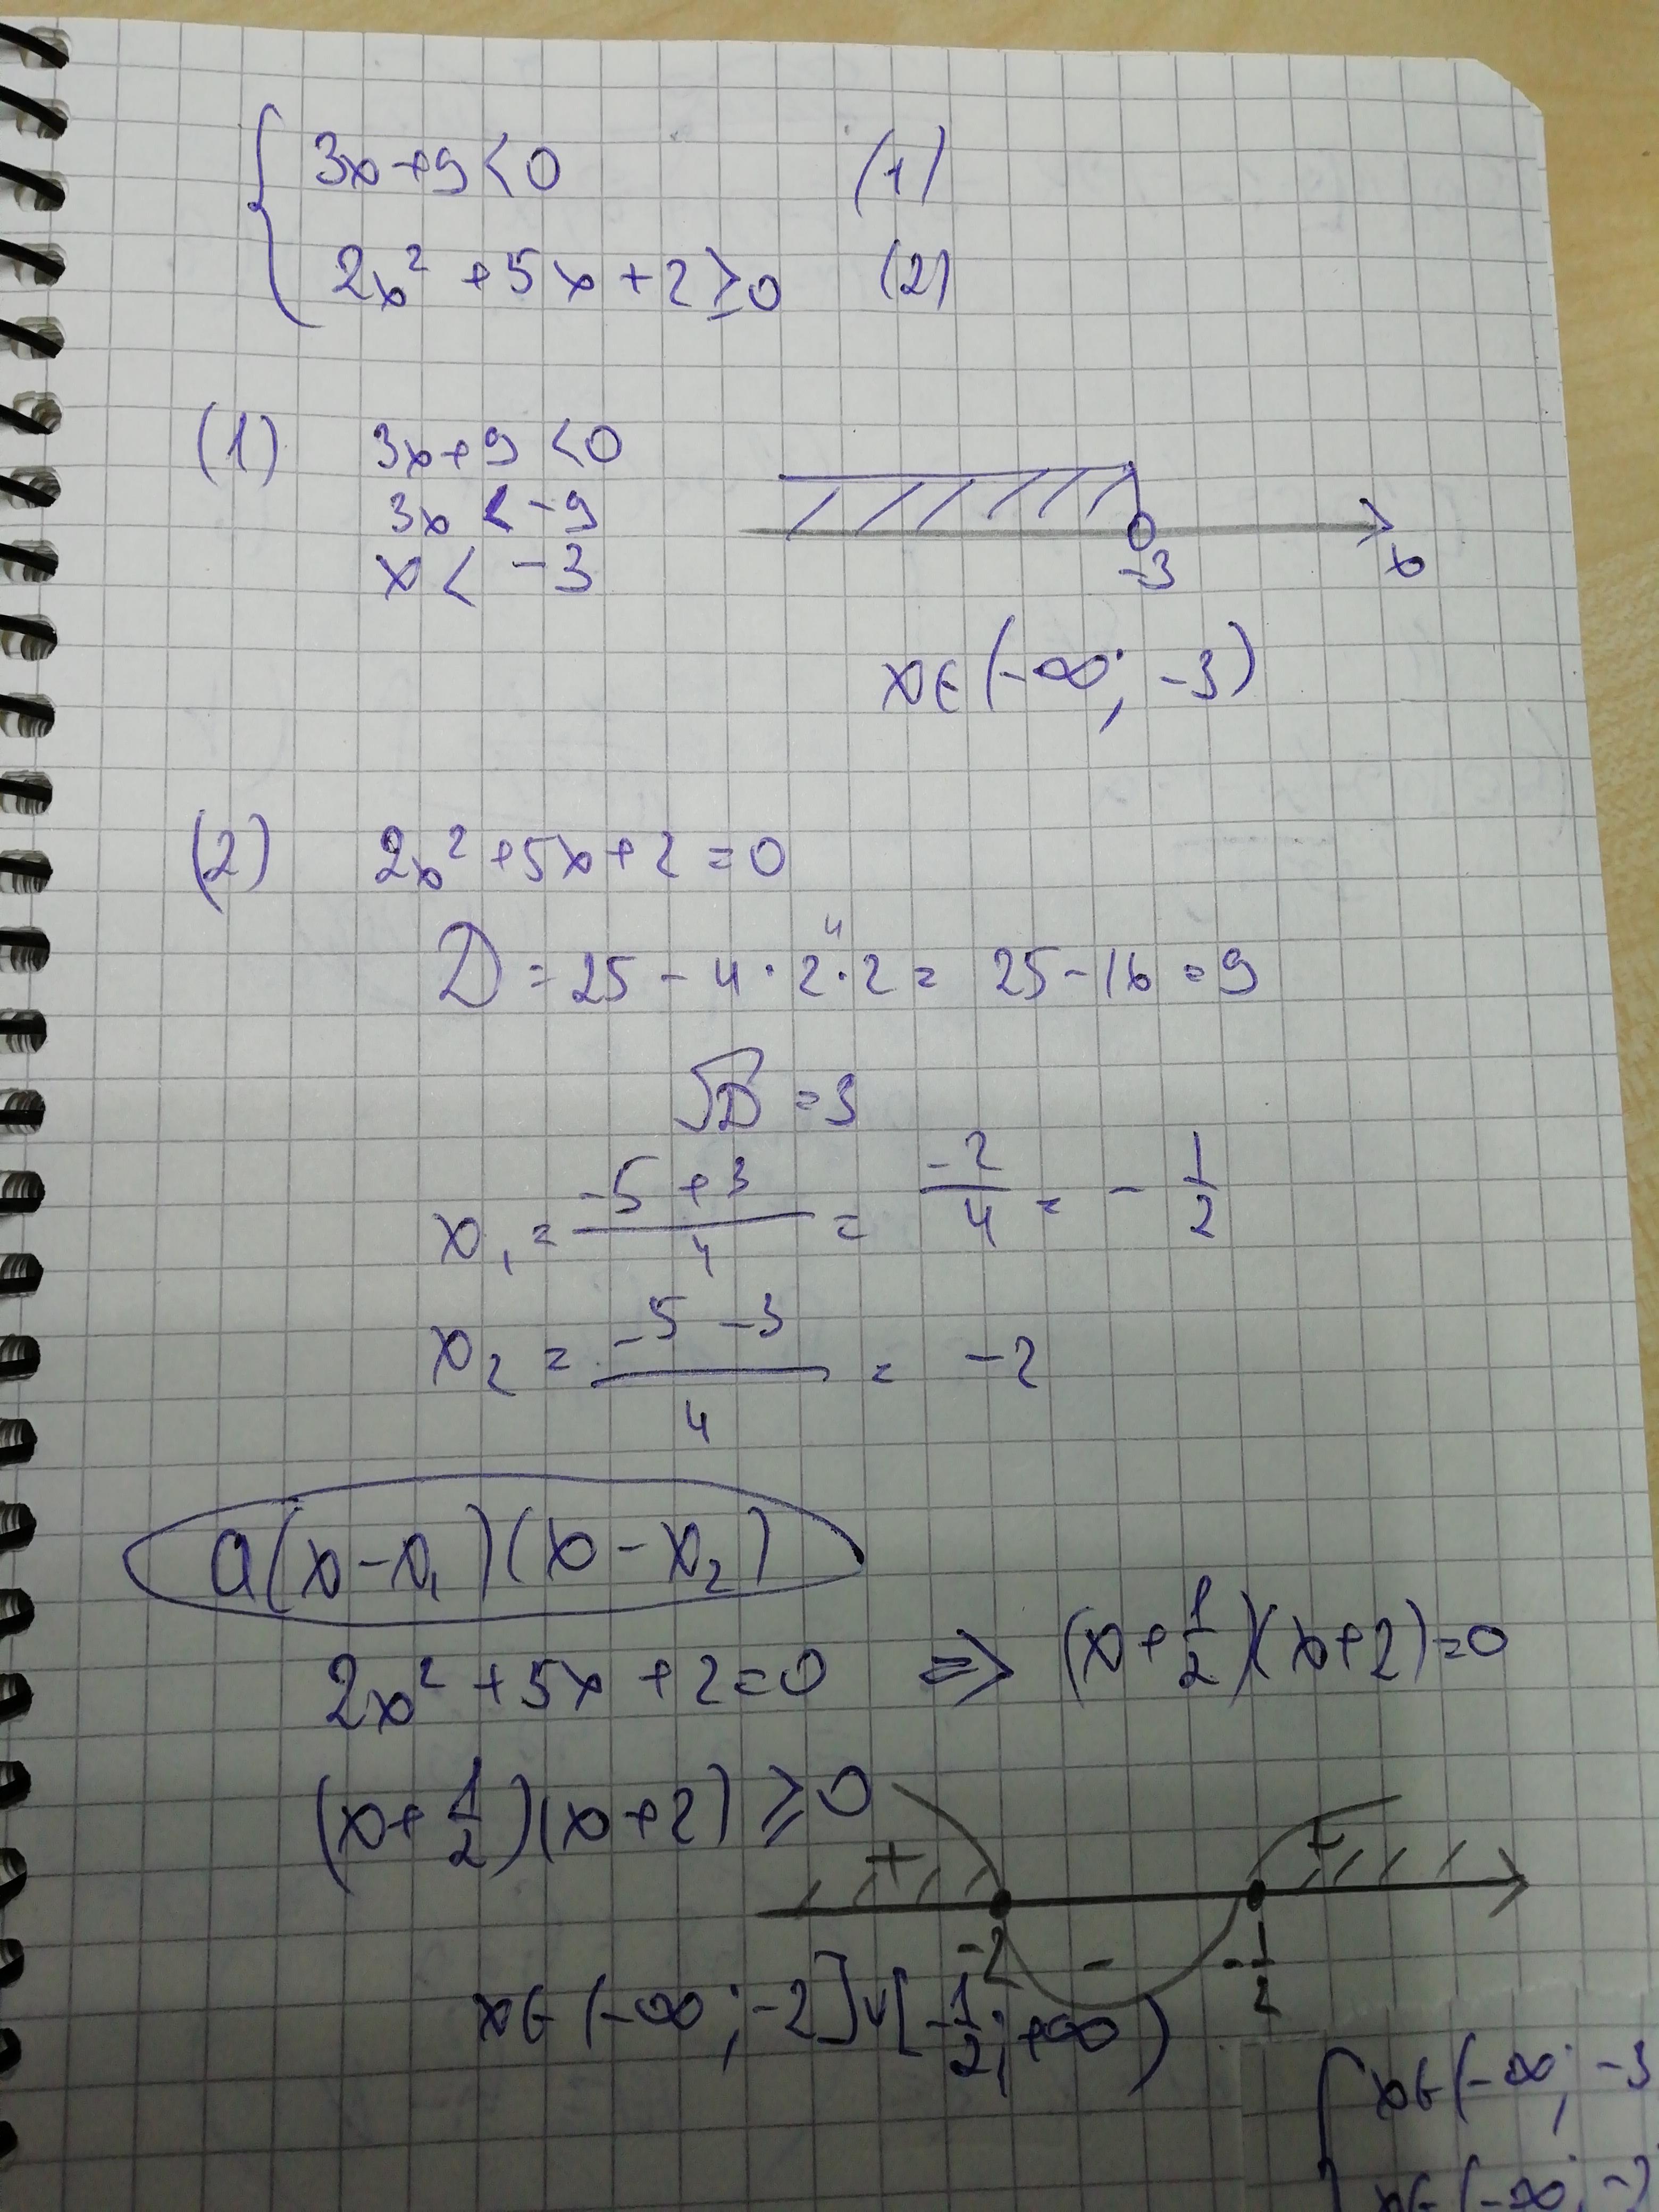 3x+9<0 (1)
2x² +5x+2≥0 (2)
(1) 3x+9<0
3x < -9
x < -3
-3 x
x∈(-∞; -3)
(2) 2x²+5x+2=0
D = 25 - 4·2·2 = 25-16 = 9
4
√D = 3
x₁ = (-5+3)/4 = -2/4 = - 1/2
x₂ = (-5-3)/4 = -2
a(x-x₁)(x-x₂)
2x²+5x+2=0 => (x+1/2)(x+2)=0
(x+1/2)(x+2) ≥0
+ - +
-2 -1/2
x∈(-∞; -2]∪[-1/2; +∞)
x∈(-∞; -3
x∈(-∞; -2